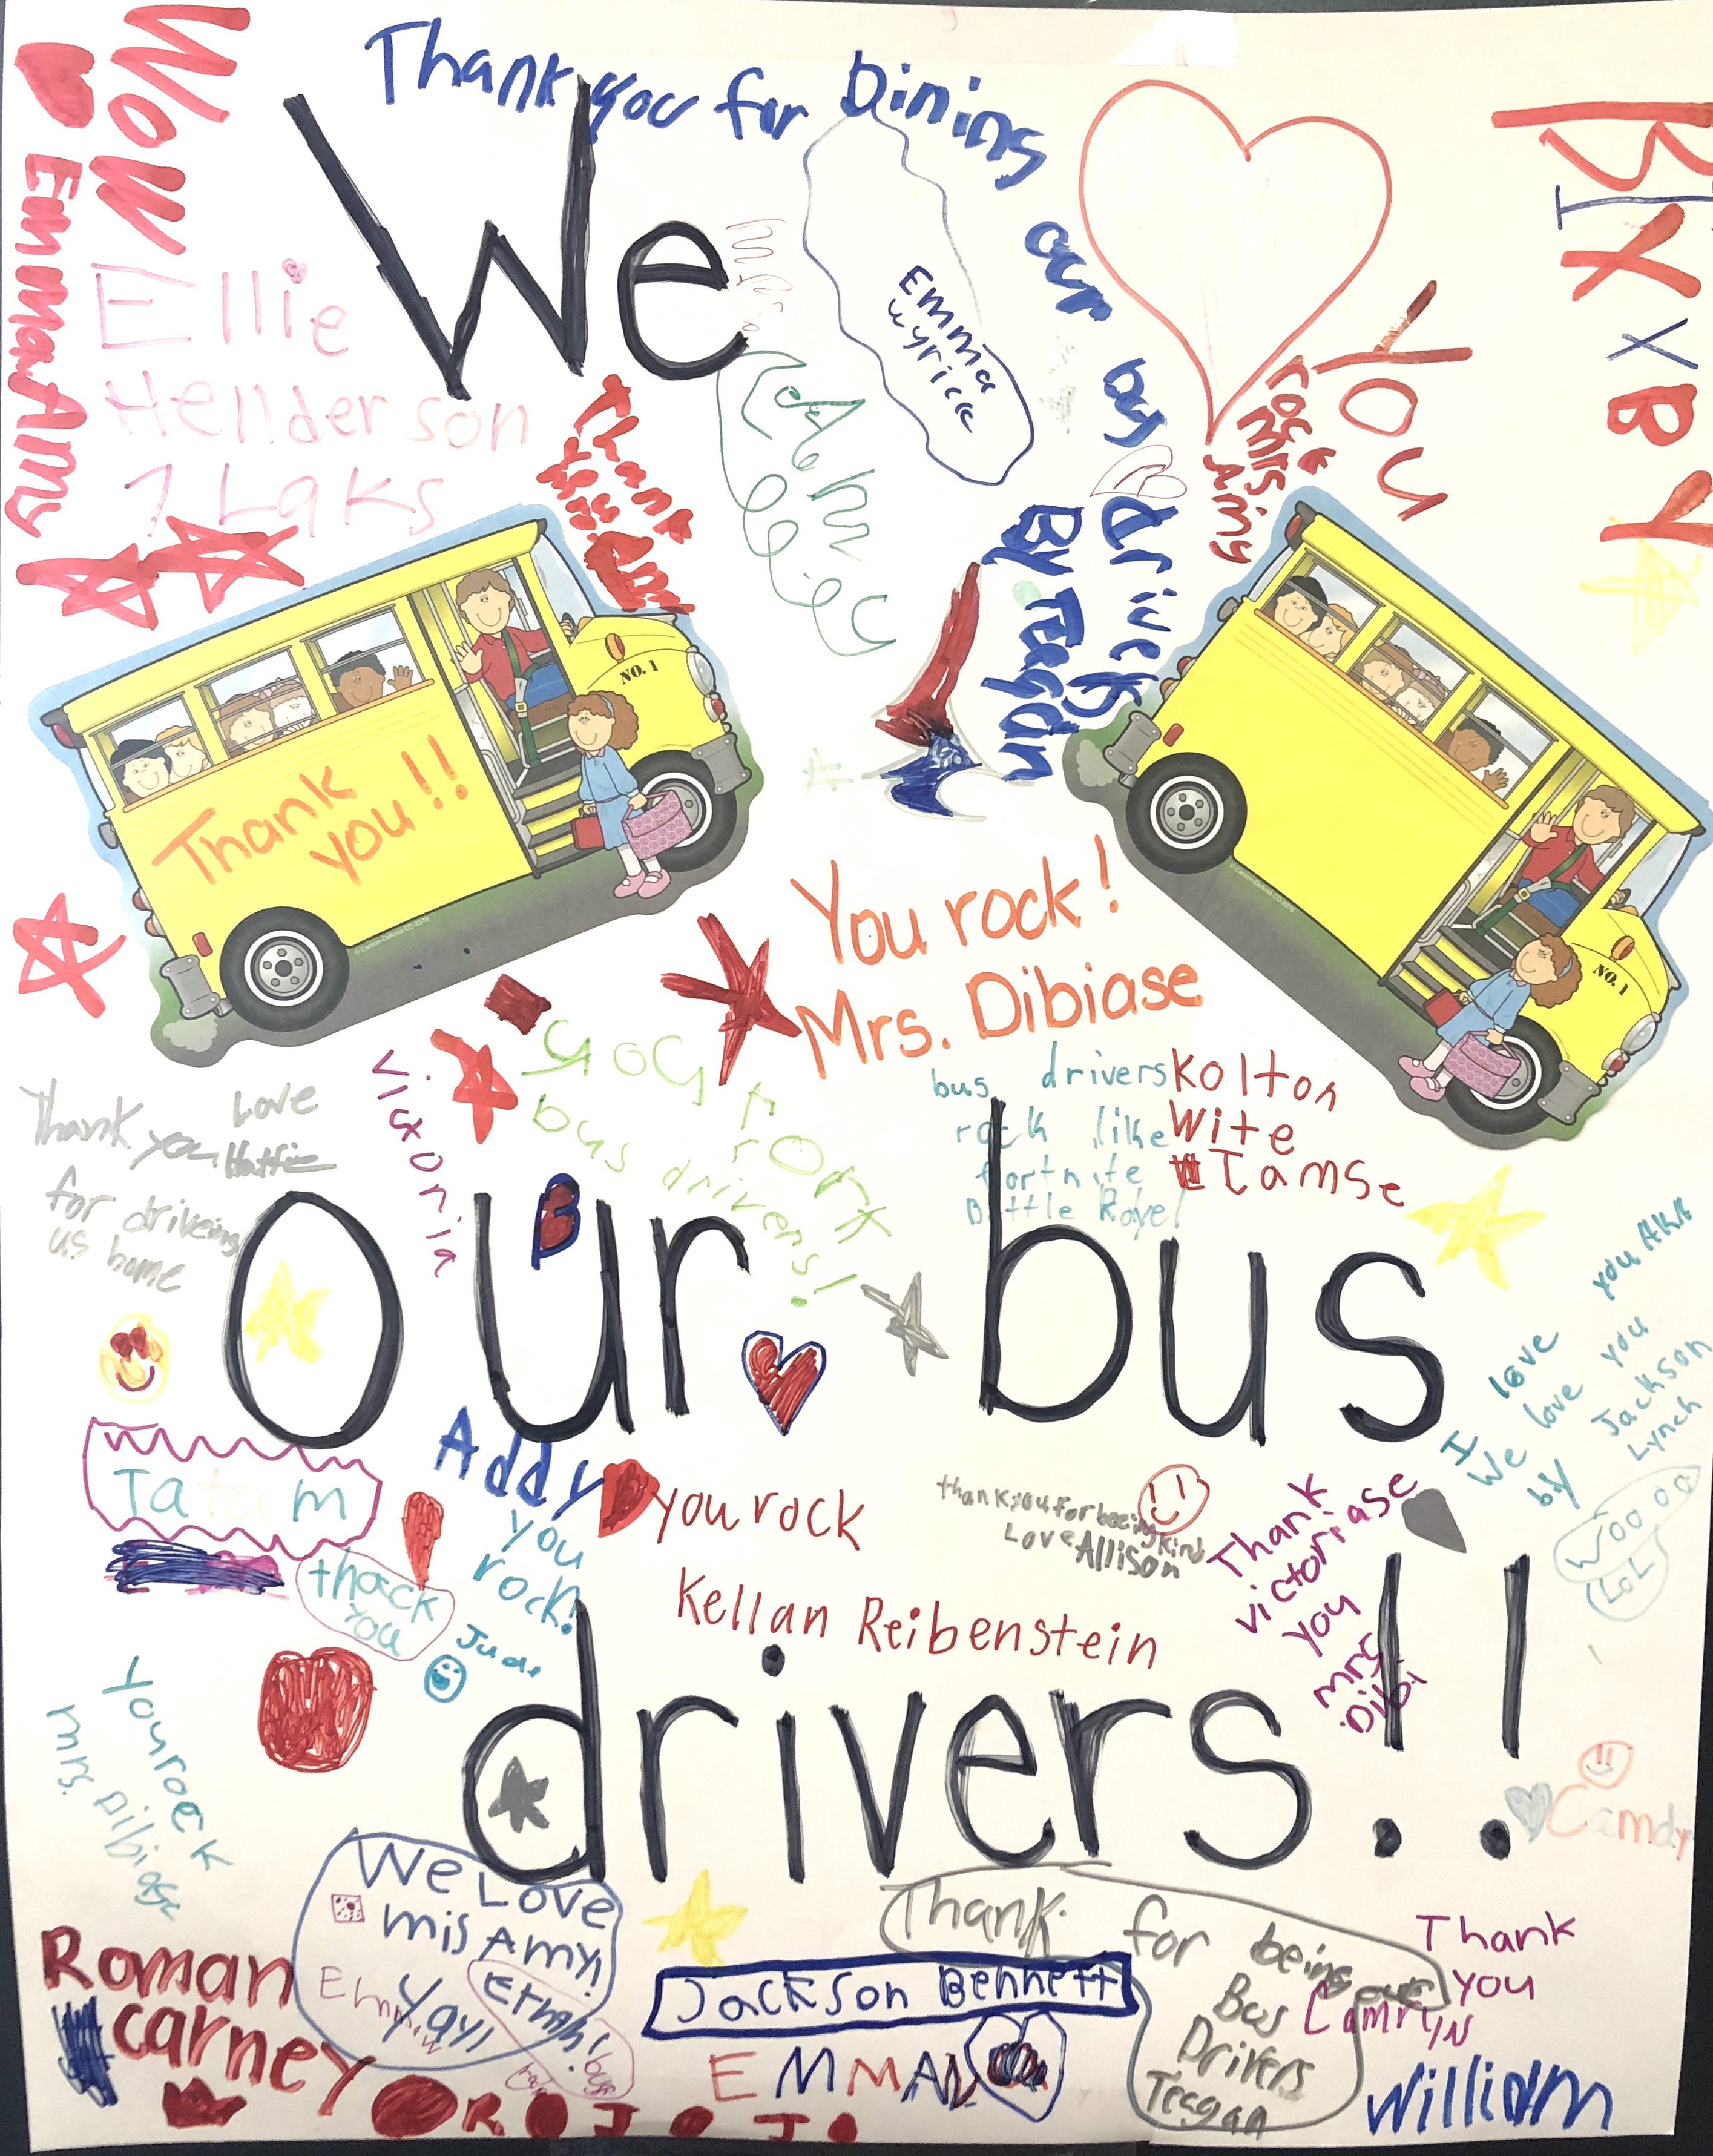 Wow
Emma Amy
Thank you for Dining
our
bus
drivers
By Teagan
We
Emma
wyrick
BIXBY
You
rock
Mrs
Amy
Ellie
Henderson
7 Laks
Thank
you
NO. 1
Thank
you!!
NO. 1
#
You rock!
Mrs. Dibiase
Thank you
for driveing
us home
Love
Hattie
Victoria
you rock
bus drivers!
bus drivers
rock like
fortnite
Battle Royel
Kolton
Wite
Iamse
our bus
B
I love you AKA
We love you
by Jackson
Lynch
Wooooo
LOL
Tatum
Addy
you rock
you
rock!
Jude
thack
you
thank you for beeing kind
Love Allison
Kellan Reibenstein
Thank
victoriase
you
mrs
Dibi
drivers!!
you rock
mrs. Dibiase
Camdyn
We Love
mis Amy!
Yay!
Emma
Roman
carney
Jackson Bennett
EMMA
Thank for being our
Bus
Drivers
Teagan
Thank
you
Camryn
William